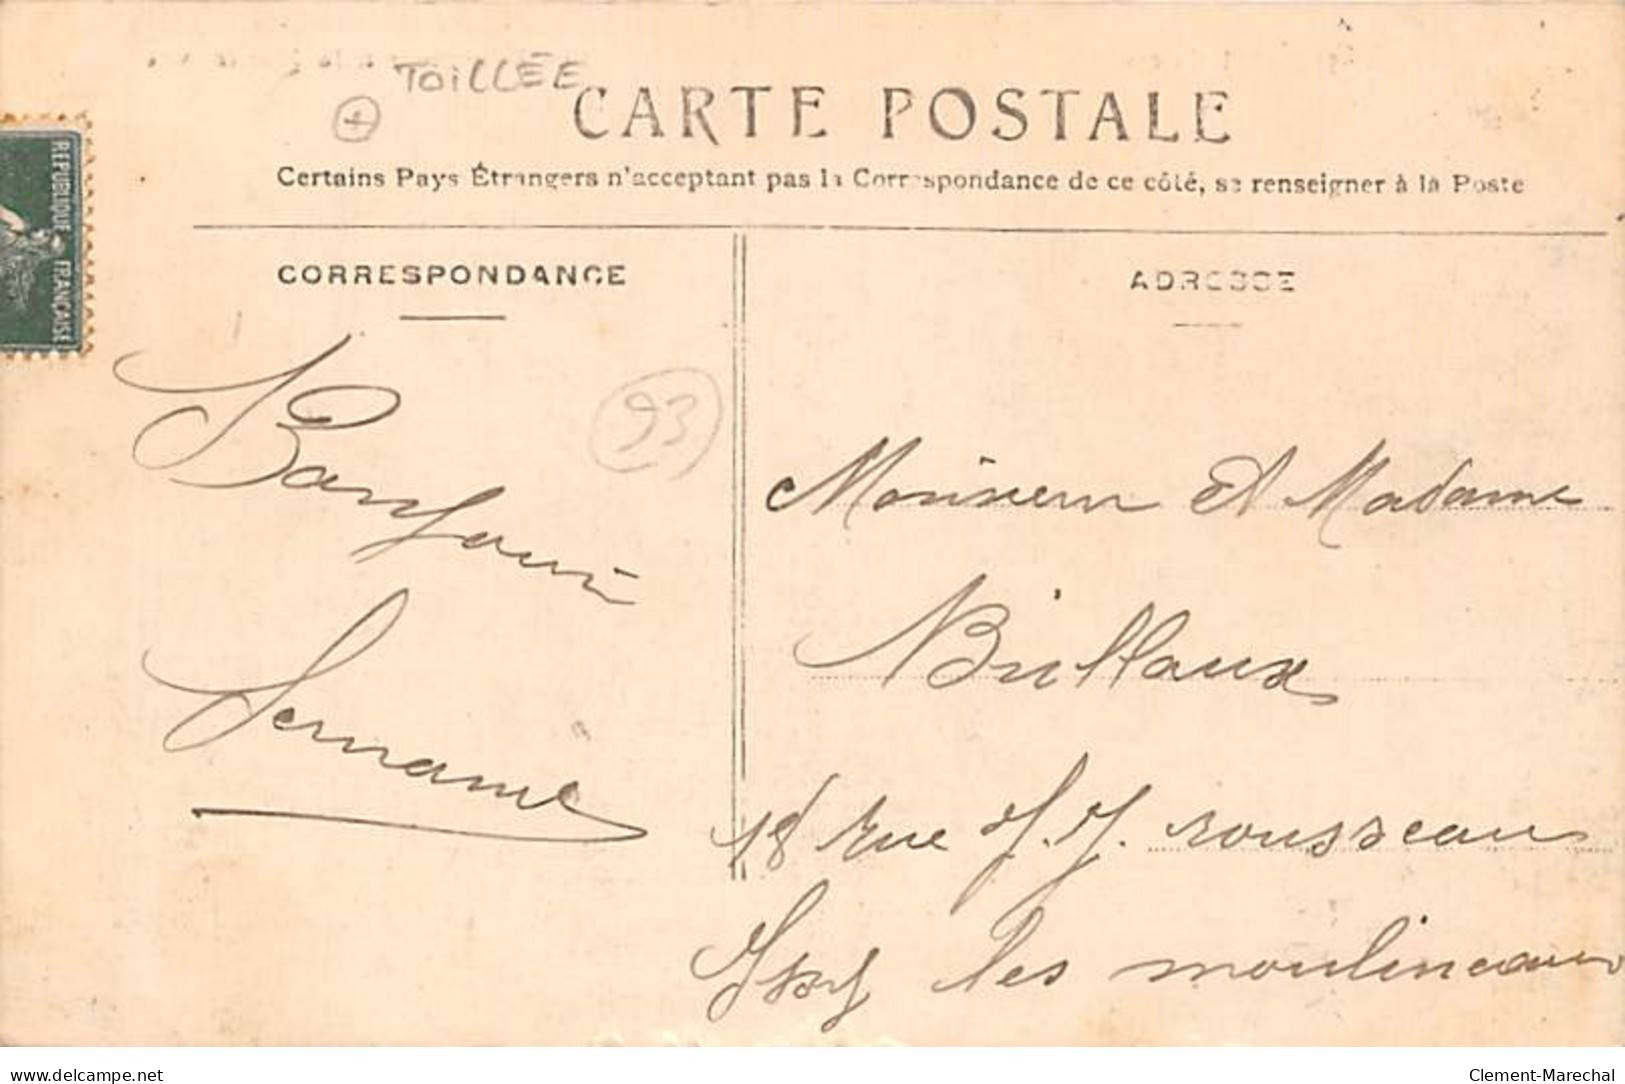 TOILLÉE
+
CARTE POSTALE
Certains Pays Étrangers n'acceptant pas la Correspondance de ce côté, se renseigner à la Poste
REPUBLIQUE FRANÇAISE
CORRESPONDANCE
93
Bonjour
Germaine
ADRESSE
Monsieur et Madame
Billaux
18 rue J. J. rousseau
Issy les moulineaux
www.delcampe.net
Clement-Marechal